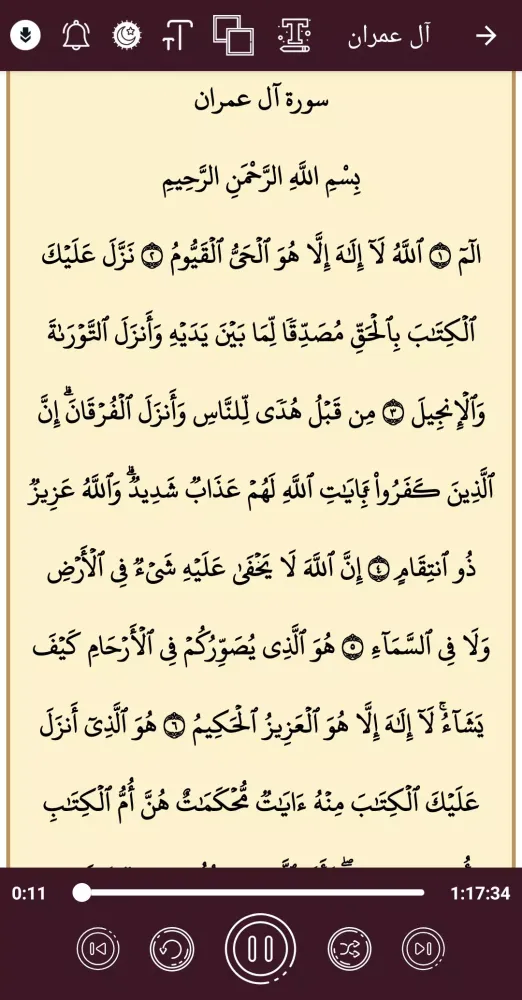 آل عمران
سورة آل عمران
بِسْمِ اللَّهِ الرَّحْمَنِ الرَّحِيمِ
الٓمٓ ١ ٱللَّهُ لَآ إِلَٰهَ إِلَّا هُوَ ٱلْحَىُّ ٱلْقَيُّومُ ٢ نَزَّلَ عَلَيْكَ
ٱلْكِتَٰبَ بِٱلْحَقِّ مُصَدِّقًا لِّمَا بَيْنَ يَدَيْهِ وَأَنزَلَ ٱلتَّوْرَىٰةَ
وَٱلْإِنجِيلَ ٣ مِن قَبْلُ هُدًى لِّلنَّاسِ وَأَنزَلَ ٱلْفُرْقَانَ ۗ إِنَّ
ٱلَّذِينَ كَفَرُوا۟ بِـَٔايَٰتِ ٱللَّهِ لَهُمْ عَذَابٌ شَدِيدٌ ۗ وَٱللَّهُ عَزِيزٌ
ذُو ٱنتِقَامٍ ٤ إِنَّ ٱللَّهَ لَا يَخْفَىٰ عَلَيْهِ شَىْءٌ فِى ٱلْأَرْضِ
وَلَا فِى ٱلسَّمَآءِ ٥ هُوَ ٱلَّذِى يُصَوِّرُكُمْ فِى ٱلْأَرْحَامِ كَيْفَ
يَشَآءُ ۚ لَآ إِلَٰهَ إِلَّا هُوَ ٱلْعَزِيزُ ٱلْحَكِيمُ ٦ هُوَ ٱلَّذِىٓ أَنزَلَ
عَلَيْكَ ٱلْكِتَٰبَ مِنْهُ ءَايَٰتٌ مُّحْكَمَٰتٌ هُنَّ أُمُّ ٱلْكِتَٰبِ
0:11 1:17:34